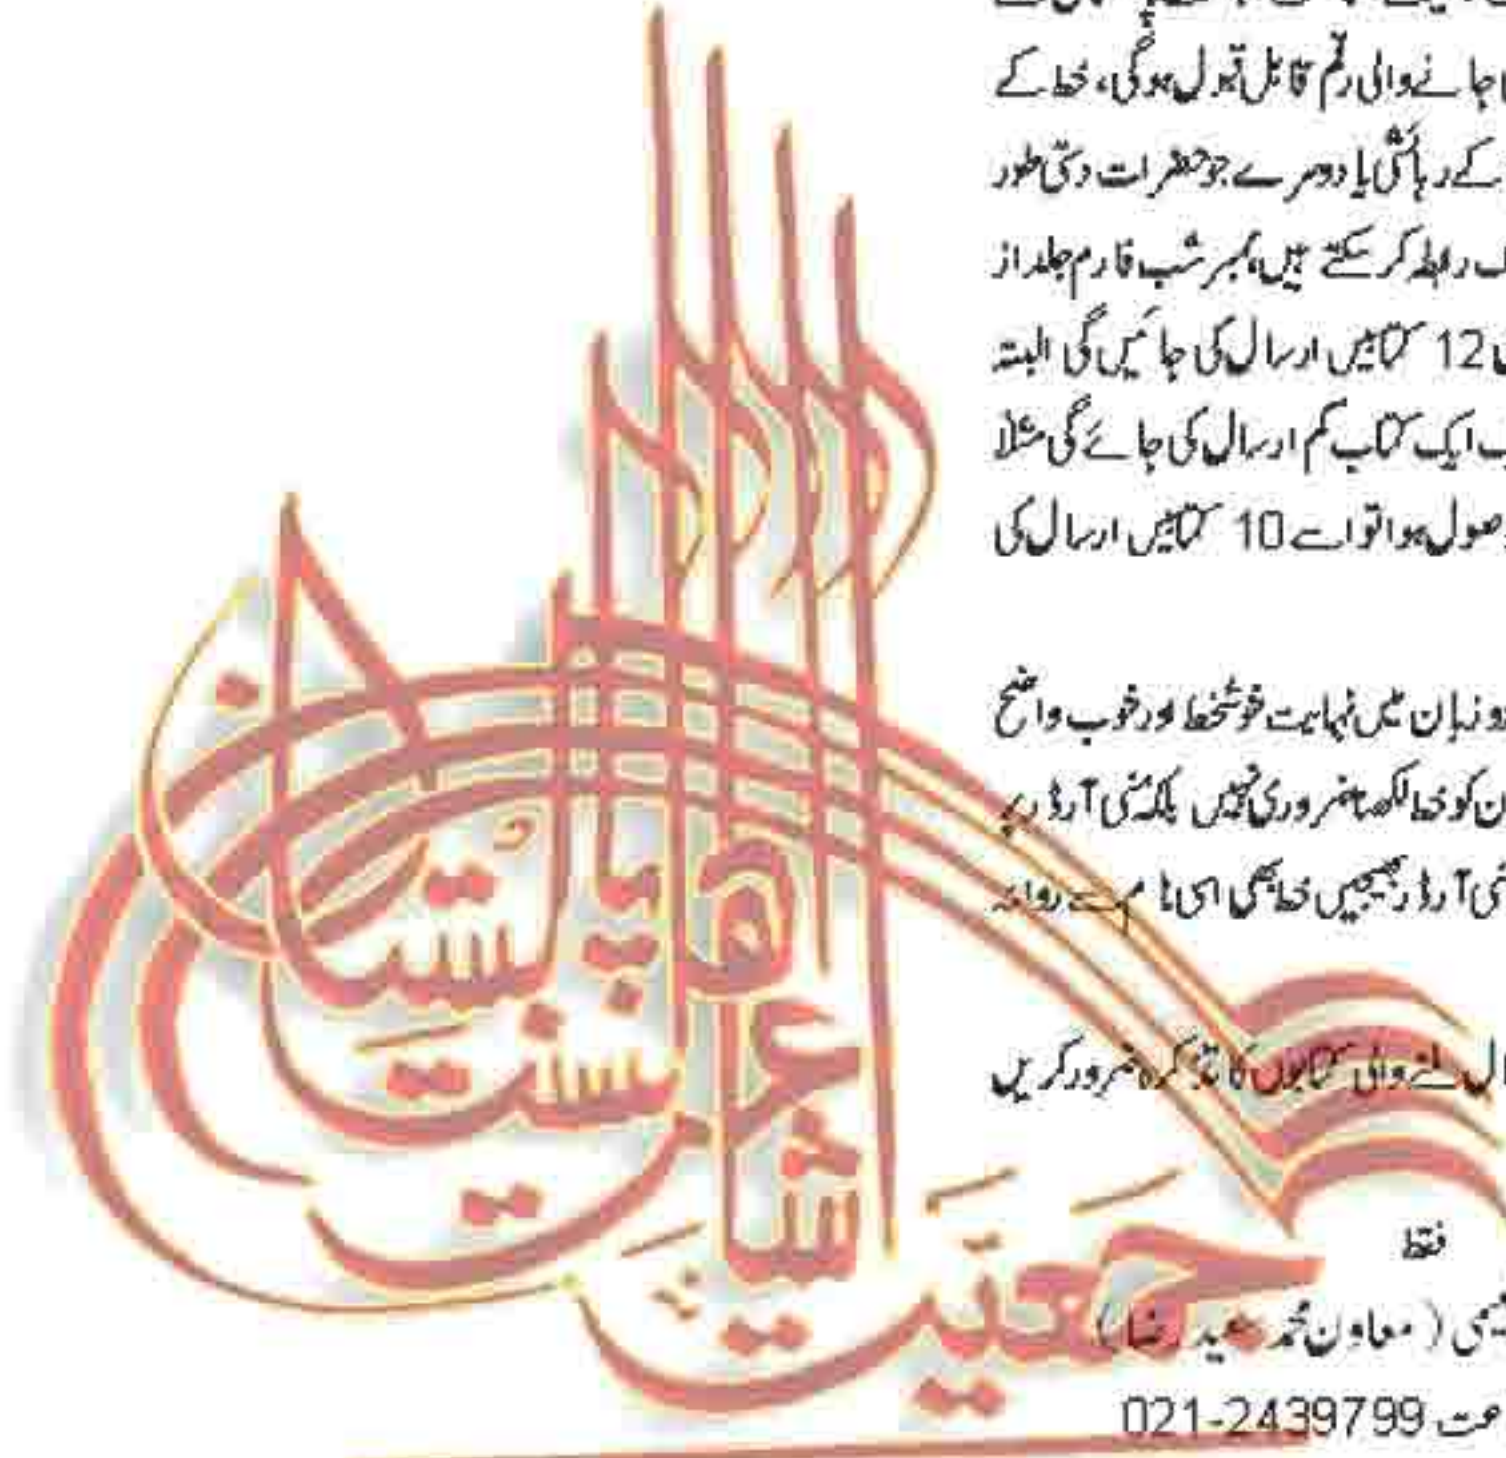 جانے والی رقم قابل قبول ہوگی، خط کے
کے رہائشی یا دوسرے جو حضرات دستی طور
رابطہ کر سکتے ہیں، ممبر شپ فارم جلد از
12 کتابیں ارسال کی جائیں گی البتہ
ایک کتاب کم ارسال کی جائے گی مثلاً
وصول ہوا تو اسے 10 کتابیں ارسال کی
زبان میں نہایت خوشخط اور خوب واضح
کو خط لکھنا ضروری نہیں بلکہ منی آرڈر پر
منی آرڈر بھیجیں خط بھی اسی نام سے روانہ
والی کتابوں کا تذکرہ ضرور کریں
فقط
(معاون محمد سعید رضا)
021-2439799
جمعیت اشاعت اہلسنت پاکستان